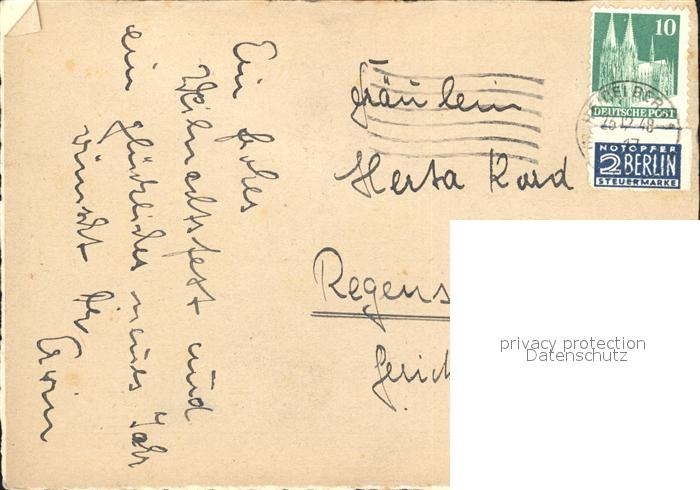 Ein frohes
Weihnachtsfest und
ein glückliches neues Jahr
wünscht Ihr
Erwin
Fräulein
Herta
Regens
Gerich
10
DEUTSCHE POST
HEIDELBERG
NOTOPFER
2 BERLIN
STEUERMARKE
privacy protection
Datenschutz